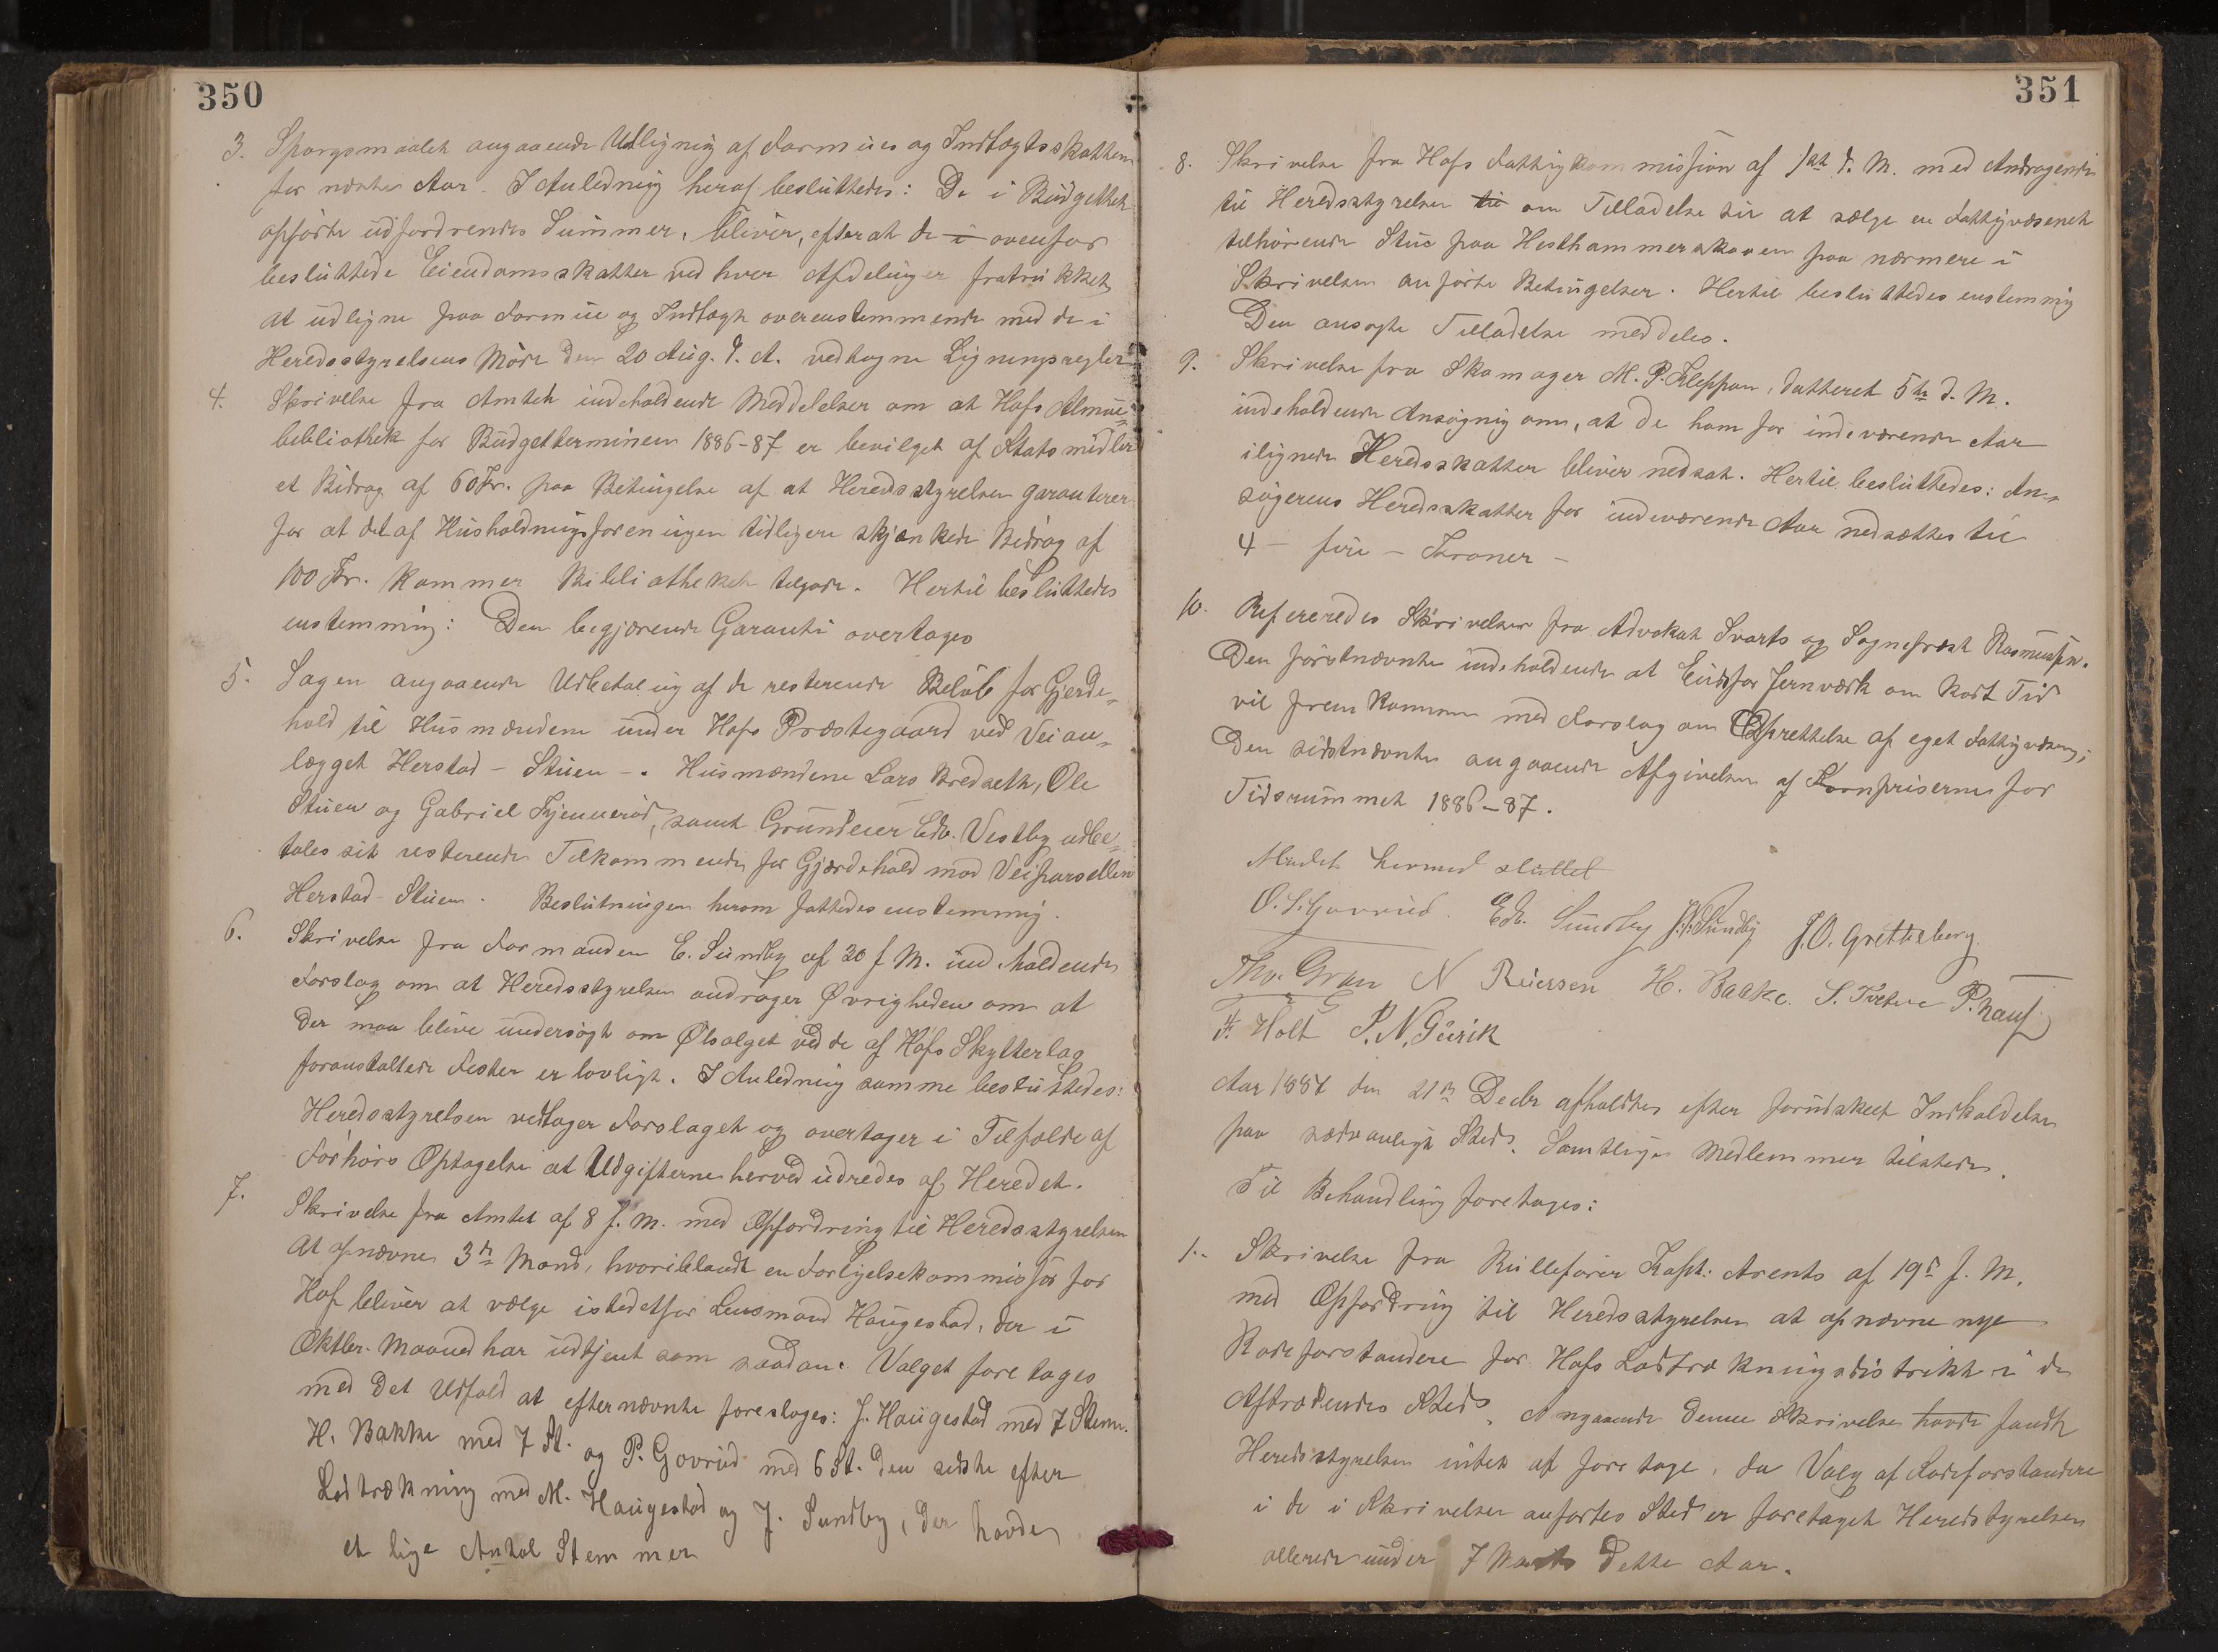 350
3. Spørgsmaalet angaaende Udligning af Formues og Indtægtsskatten
for næste Aar. I Anledning heraf besluttedes: De i Budgettet
opførte udfordrende Summer, bliver, efterat de i ovenfor
besluttede Eiendomsskatter ved hver Afdelinger fratrukket
at udligne paa Formue og Indtægt overensstemmende med de i
Heredsstyrelsens Møde den 20 Aug. d. A. vedtagne Ligningsregler
4. Skrivelse fra Amtet indeholdende Meddelelser om at Hofs Almue-
bibliothek for Budgetterminen 1886-87 er bevilget af Statsmidler
et Bidrag af 60 Kr. paa Betingelse af at Heredsstyrelsen garanterer
for at det af Husholdningsforeningen tidligere skjænkede Bidrag af
100 Kr. kommer Bibliotheket tilgode. Hertil besluttedes
enstemmig: Den begjærende Garanti overtages
5. Sagen angaaende Udbetaling af de resterende Beløb for Gjerde-
hold til Husmændene under Hofs Præstegaard ved Veian-
lægget Herstad - Stuen -. Husmændene Lars Bredseth, Ole
Stuen og Gabriel Kjennerød, samt Grundeier Edv. Vestby udbe-
tales sit resterende Tilkommende for Gjærdehold mod Veiparsellen
Herstad-Stuen. Beslutningen herom fattedes enstemmig.
6. Skrivelse fra Formanden E. Sundby af 30 f. M. indeholdende
Forslag om at Heredsstyrelsen andrager Øvrigheden om at
der maa blive undersøgt om Ølsalget ved de af Hofs Skytterlag
foranstaltede Fester er lovligt. I Anledning samme besluttedes:
Heredsstyrelsen vedtager Forslaget og overtager i Tilfælde af
Forhørs Optagelse at Udgifterne herved udredes af Heredet.
7. Skrivelse fra Amtet af 8 f. M. med Opfordring til Heredsstyrelsen
at opnævne 3de Mænd, hvoriblandt en Forligelseskommissær for
Hof bliver at vælge istedetfor Lensmand Haugestad, der i
Oktbr. Maaned har udtjent som saadan. Valget foretages
med det Udfald at efternævnte foreslages: J. Haugestad med 7 Stem.
H. Bakke med 7 St. og P. Govrud med 6 St. den sidste efter
Lodtrækning med M. Haugestad og J. Sundby, der havde
et lige Antal Stemmer
351
8. Skrivelse fra Hofs Fattigkommission af 1ste d. M. med Andragende
til Heredsstyrelsen til om Tilladelse til at sælge en Fattigvæsenet
tilhørende Stue paa Hesthammerskoven paa nærmere i
Skrivelsen anførte Betingelser. Hertil besluttedes enstemmig
Den ansøgte Tilladelse meddeles.
9. Skrivelse fra Skomager M. P. Kleppan, datteret 5te d. M.
indeholdende Ansøgnig om, at de ham for indeværende Aar
ilignede Heredsskatter bliver nedsat. Hertil besluttedes: An-
søgerens Heredsskatter for indeværende Aar nedsættes til
4 - fire - Kroner -
10. Refereredes Skrivelser fra Advokat Svarts og Sogneprest Rasmussen.
Den førstnævnte indeholdende at Eidsfos Jernværk om kort Tid
vil fremkomme med Forslag om Oprettelse af eget Fattigvæsen;
Den sidstnævnte angaaende Afgivelsen af Kornpriserne for
Tidsrummet 1886-87.
Mødet hermed sluttet
O. S. Govrud. Edv. Sundby J. Sundby J. O. Grettesberg.
Thv. Gran N Reiersen H. Bakke. S. Tveten P. Knauf
F. Holt P. N. Gurik
Aar 1887 den 21de Decbr afholdtes efter forudskeet Indkaldelse
paa sædvanligt Sted. Samtlige Medlemmer tilstede.
Til Behandling foretoges:
1. Skrivelse fra Rullefører Kapt: Arents af 19de f. M.
med Opfordring til Heredsstyrelsen at opnævne nye
Rodeforstandere for Hofs Lodtrækningsdistrikt i de
Aftrædendes Sted. Angaaende denne Skrivelse havde fandt
Heredsstyrelsen intet at foretage, da Valg af Rodeforstandere
i de i Skrivelsen anførtes Sted er foretaget Heredstyrelsen
allerede under 7 Marts dette Aar.